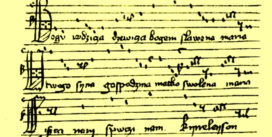 ogv rodzicza dzewicza bogem slawena maria
twego syna gospodzina matko swolena maria
nam spwczi nam. Kyrieleyson